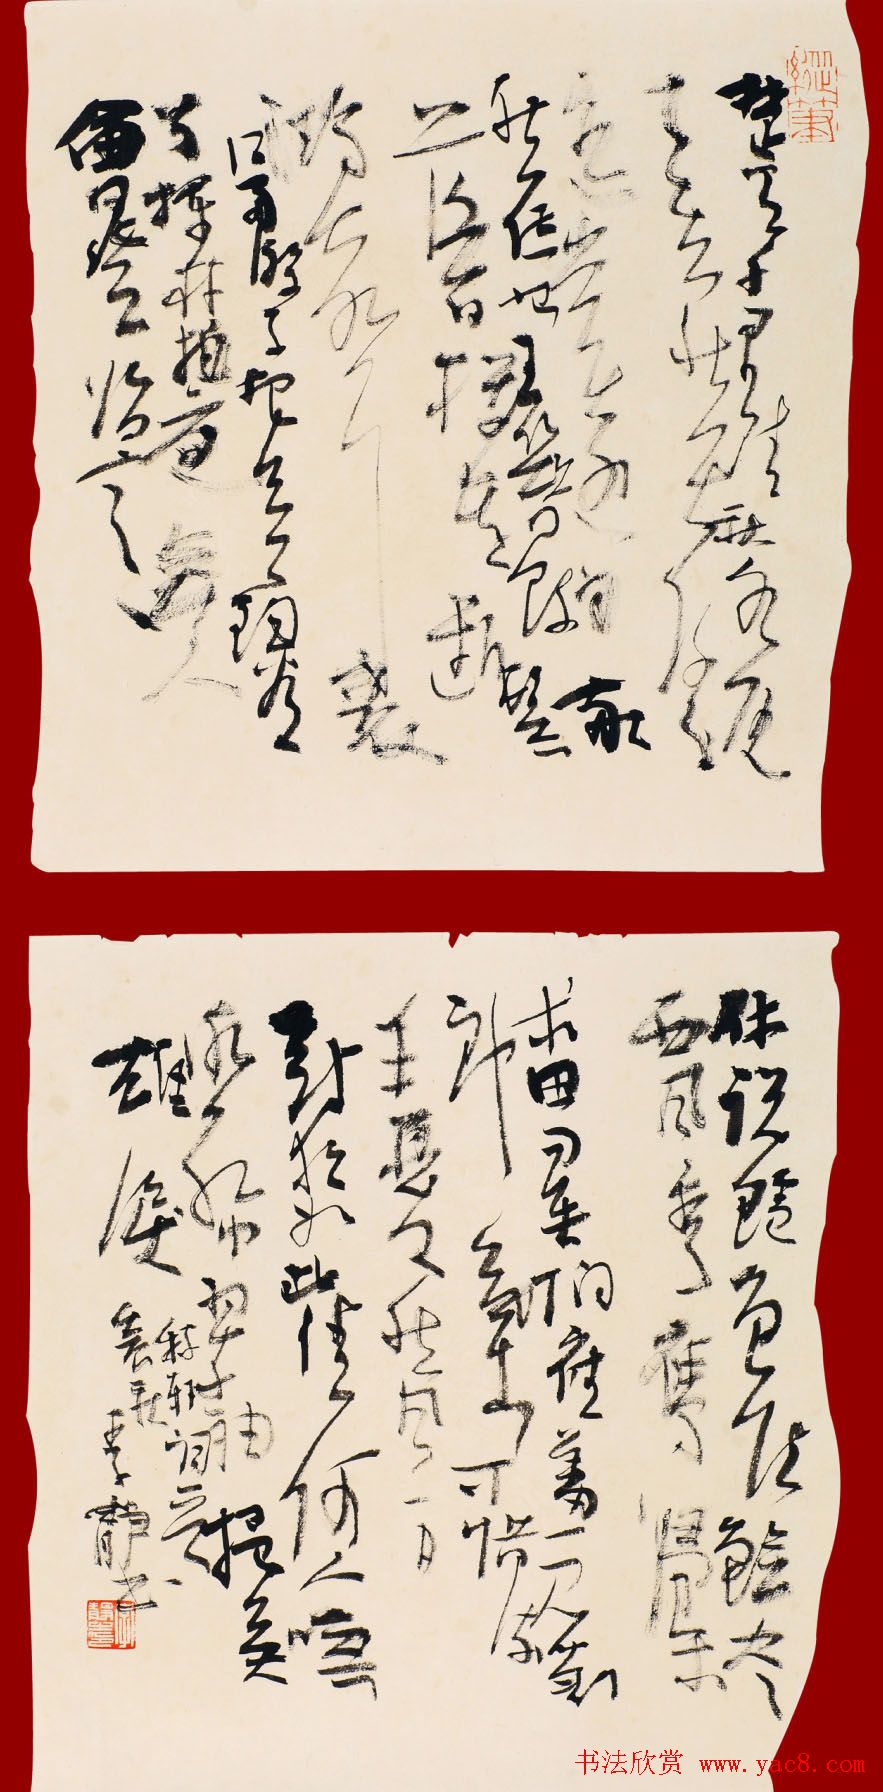 楚天千里清秋水随
天去秋无际遥岑
远目献
愁供恨玉簪螺髻
落日楼头断
鸿声里江
南游子把吴钩看
了栏杆拍遍无人
会登临意
休说鲈鱼堪脍尽
西风季鹰归未
求田问舍怕应羞见刘
郎才气可惜流
年忧愁风雨
树犹如此倩何人唤
取红巾翠袖揾英
雄泪
稼轩词意
李静书
书法欣赏 www.yac8.com